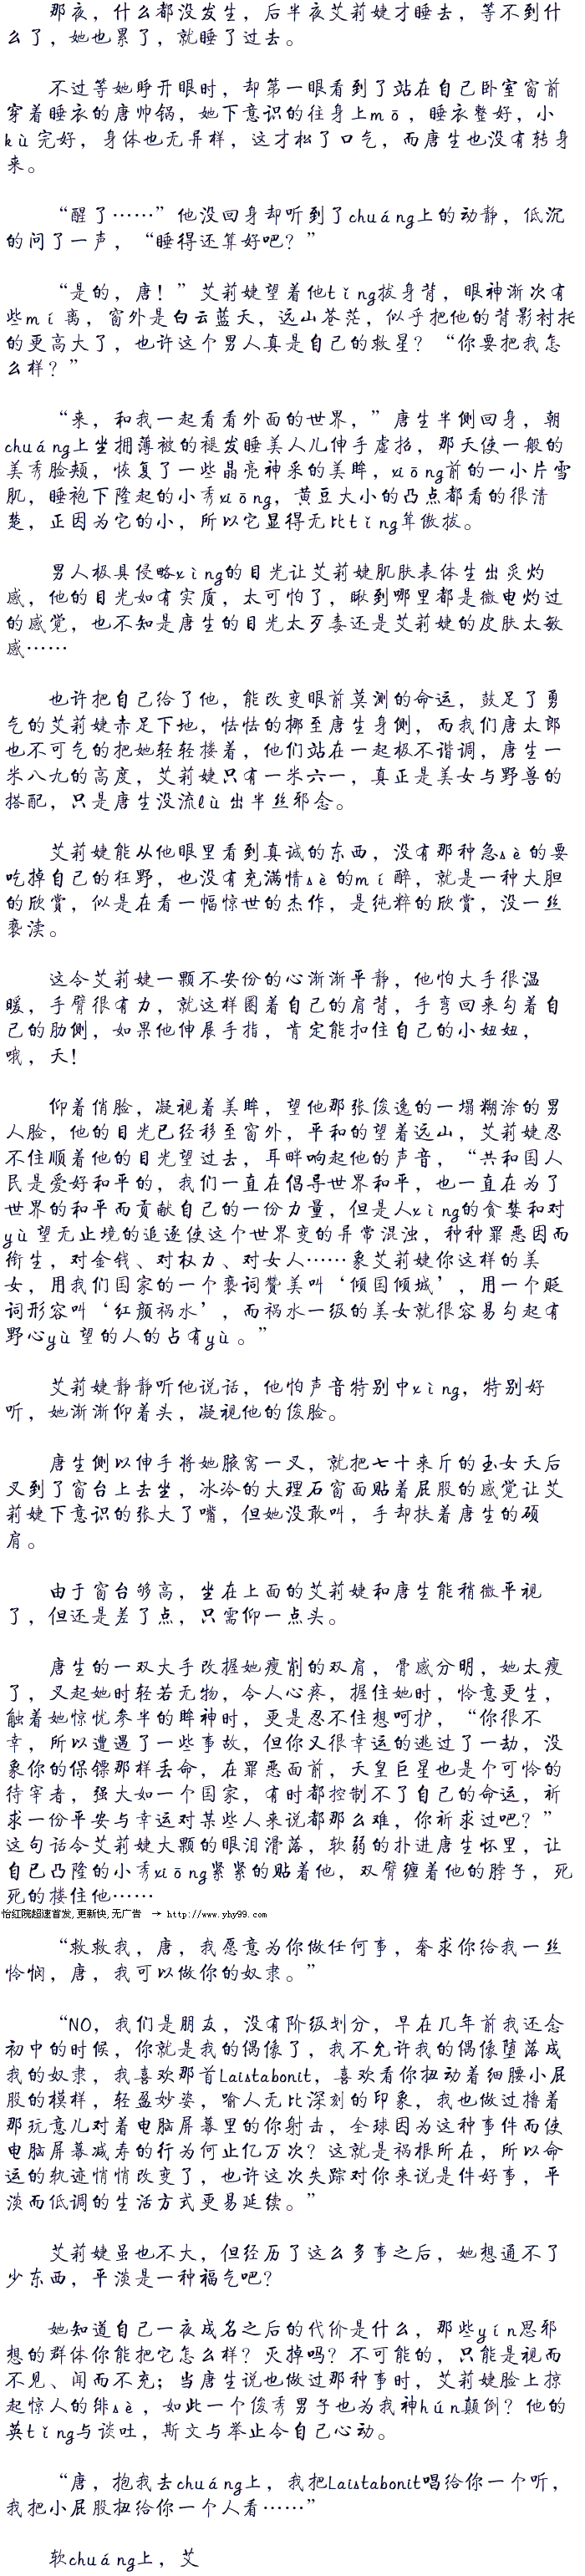 那夜，什么都没发生，后半夜艾莉婕才睡去，等不到什
么了，她也累了，就睡了过去。
不过等她睁开眼时，却第一眼看到了站在自己卧室窗前
穿着睡衣的唐帅锅，她下意识的往身上mō，睡衣整好，小
kù完好，身体也无异样，这才松了口气，而唐生也没有转身
来。
“醒了……”他没回身却听到了chuáng上的动静，低沉
的问了一声，“睡得还算好吧？”
“是的，唐！”艾莉婕望着他tǐng拔身背，眼神渐次有
些mí离，窗外是白云蓝天，远山苍茫，似乎把他的背影衬托
的更高大了，也许这个男人真是自己的救星？“你要把我怎
么样？”
“来，和我一起看看外面的世界，”唐生半侧回身，朝
chuáng上坐拥薄被的褪发睡美人儿伸手虚招，那天使一般的
美秀脸颊，恢复了一些晶亮神采的美眸，xiōng前的一小片雪
肌，睡袍下隆起的小秀xiōng，黄豆大小的凸点都看的很清
楚，正因为它的小，所以它显得无比tǐng耸傲拔。
男人极具侵略xìng的目光让艾莉婕肌肤表体生出炙灼
感，他的目光如有实质，太可怕了，瞅到哪里都是微电灼过
的感觉，也不知是唐生的目光太歹毒还是艾莉婕的皮肤太敏
感……
也许把自己给了他，能改变眼前莫测的命运，鼓足了勇
气的艾莉婕赤足下地，怯怯的挪至唐生身侧，而我们唐太郎
也不可气的把她轻轻搂着，他们站在一起极不谐调，唐生一
米八九的高度，艾莉婕只有一米六一，真正是美女与野兽的
搭配，只是唐生没流lù出半丝邪念。
艾莉婕能从他眼里看到真诚的东西，没有那种急sè的要
吃掉自己的狂野，也没有充满情sè的mí醉，就是一种大胆
的欣赏，似是在看一幅惊世的杰作，是纯粹的欣赏，没一丝
亵渎。
这令艾莉婕一颗不安份的心渐渐平静，他怕大手很温
暖，手臂很有力，就这样圈着自己的肩背，手弯回来勾着自
己的肋侧，如果他伸展手指，肯定能扣住自己的小妞妞，
哦，天！
仰着俏脸，凝视着美眸，望他那张俊逸的一塌糊涂的男
人脸，他的目光已经移至窗外，平和的望着远山，艾莉婕忍
不住顺着他的目光望过去，耳畔响起他的声音，“共和国人
民是爱好和平的，我们一直在倡导世界和平，也一直在为了
世界的和平而贡献自己的一份力量，但是人xìng的贪婪和对
yù望无止境的追逐使这个世界变的异常混浊，种种罪恶因而
衔生，对金钱、对权力、对女人……象艾莉婕你这样的美
女，用我们国家的一个褒词赞美叫‘倾国倾城’，用一个贬
词形容叫‘红颜祸水’，而祸水一级的美女就很容易勾起有
野心yù望的人的占有yù。”
艾莉婕静静听他说话，他怕声音特别中xìng，特别好
听，她渐渐仰着头，凝视他的俊脸。
唐生侧以伸手将她腋窝一叉，就把七十来斤的玉女天后
叉到了窗台上去坐，冰冷的大理石窗面贴着屁股的感觉让艾
莉婕下意识的张大了嘴，但她没敢叫，手却扶着唐生的硕
肩。
由于窗台够高，坐在上面的艾莉婕和唐生能稍微平视
了，但还是差了点，只需仰一点头。
唐生的一双大手改握她瘦削的双肩，骨感分明，她太瘦
了，叉起她时轻若无物，令人心疼，握住她时，怜意更生，
触着她惊忧参半的眸神时，更是忍不住想呵护，“你很不
幸，所以遭遇了一些事故，但你又很幸运的逃过了一劫，没
象你的保镖那样丢命，在罪恶面前，天皇巨星也是个可怜的
待宰者，强大如一个国家，有时都控制不了自己的命运，祈
求一份平安与幸运对某些人来说都那么难，你祈求过吧？”
这句话令艾莉婕大颗的眼泪滑落，软弱的扑进唐生怀里，让
自己凸隆的小秀xiōng紧紧的贴着他，双臂缠着他的脖子，死
死的搂住他……
怡红院超速首发，更新快，无广告 → http://www.yhy99.com
“救救我，唐，我愿意为你做任何事，奢求你给我一丝
怜悯，唐，我可以做你的奴隶。”
“NO，我们是朋友，没有阶级划分，早在几年前我还念
初中的时候，你就是我的偶像了，我不允许我的偶像堕落成
我的奴隶，我喜欢那首Laistabonit，喜欢看你扭动着细腰小屁
股的模样，轻盈妙姿，喻人无比深刻的印象，我也做过撸着
那玩意儿对着电脑屏幕里的你射击，全球因为这种事件而使
电脑屏幕减寿的行为何止亿万次？这就是祸根所在，所以命
运的轨迹悄悄改变了，也许这次失踪对你来说是件好事，平
淡而低调的生活方式更易延续。”
艾莉婕虽也不大，但经历了这么多事之后，她想通不了
少东西，平淡是一种福气吧？
她知道自己一夜成名之后的代价是什么，那些yín思邪
想的群体你能把它怎么样？灭掉吗？不可能的，只能是视而
不见、闻而不充；当唐生说也做过那种事时，艾莉婕脸上掠
起惊人的绯sè，如此一个俊秀男子也为我神hún颠倒？他的
英tǐng与谈吐，斯文与举止令自己心动。
“唐，抱我去chuáng上，我把Laistabonit唱给你一个听，
我把小屁股扭给你一个人看……”
软chuáng上，艾